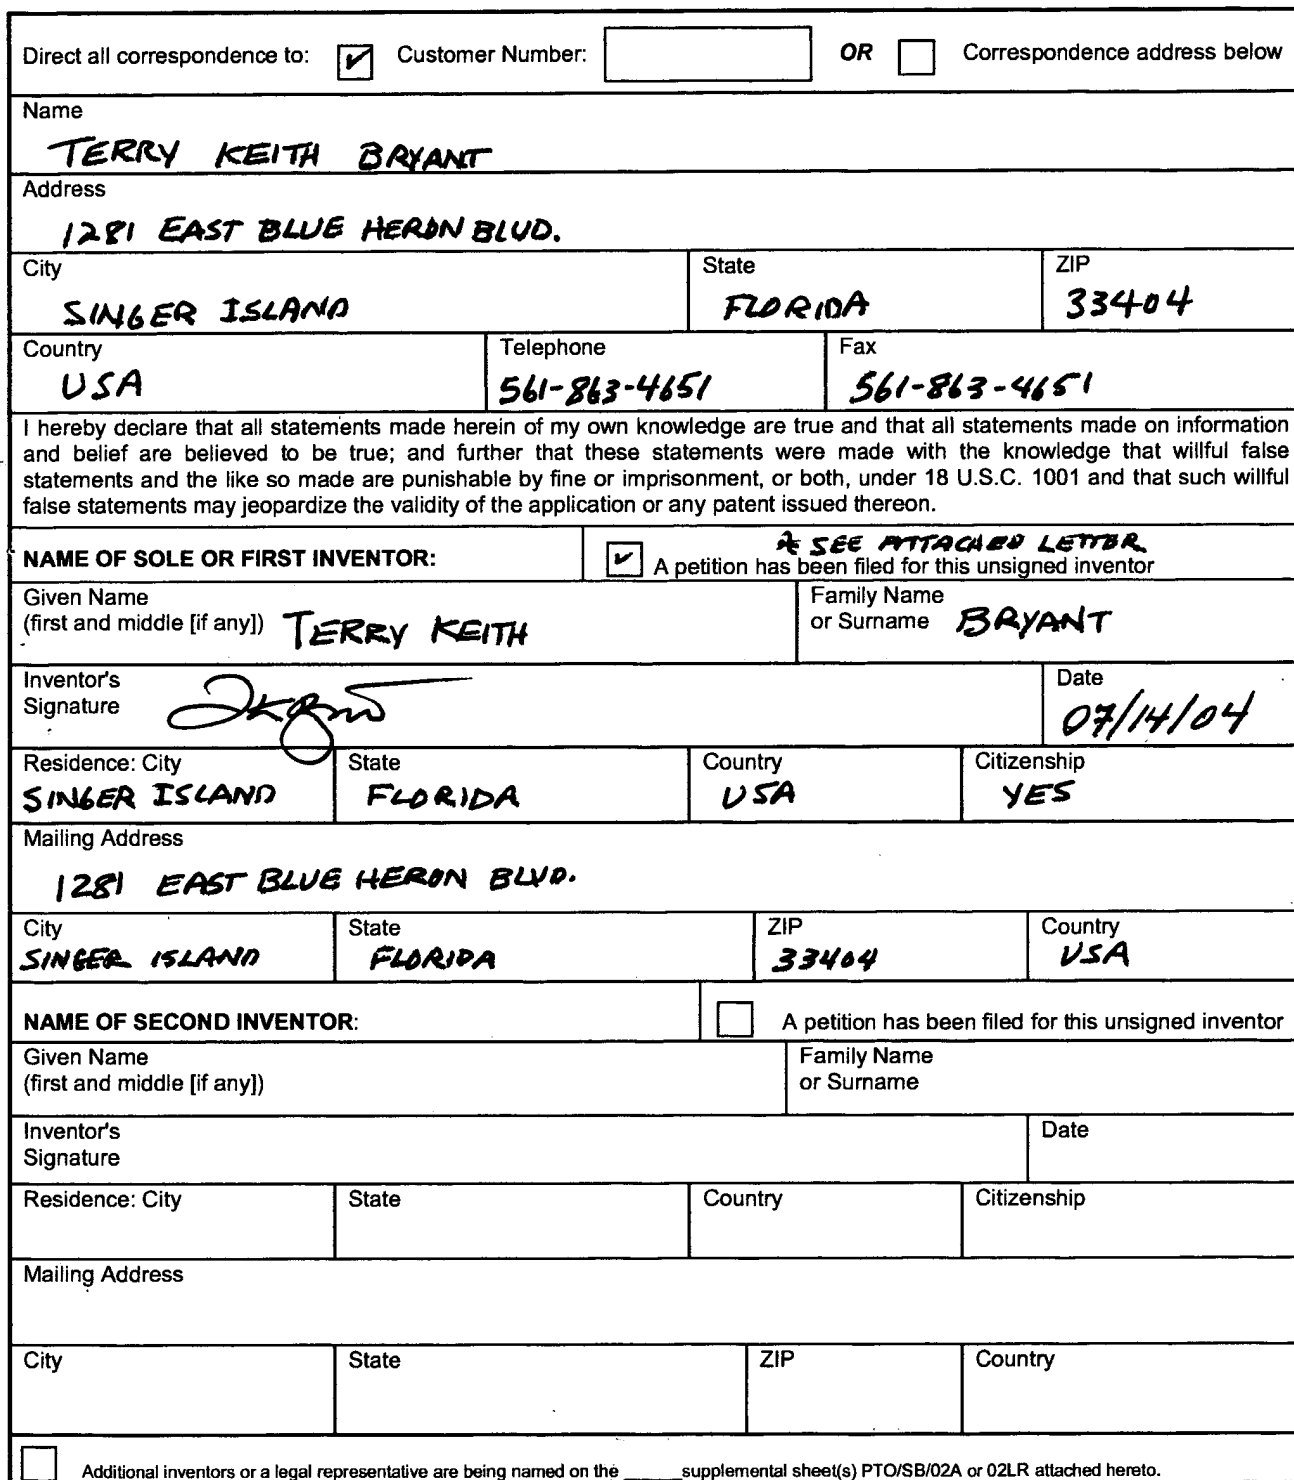 Direct all correspondence to: ✔ Customer Number: OR Correspondence address below
Name
TERRY KEITH BRYANT
Address
1281 EAST BLUE HERON BLVD.
City State ZIP
SINGER ISLAND FLORIDA 33404
Country Telephone Fax
USA 561-863-4651 561-863-4651
I hereby declare that all statements made herein of my own knowledge are true and that all statements made on information
and belief are believed to be true; and further that these statements were made with the knowledge that willful false
statements and the like so made are punishable by fine or imprisonment, or both, under 18 U.S.C. 1001 and that such willful
false statements may jeopardize the validity of the application or any patent issued thereon.
* SEE ATTACHED LETTER
NAME OF SOLE OR FIRST INVENTOR: ✔ A petition has been filed for this unsigned inventor
Given Name Family Name
(first and middle [if any]) TERRY KEITH or Surname BRYANT
Inventor's Date
Signature 07/14/04
Residence: City State Country Citizenship
SINGER ISLAND FLORIDA USA YES
Mailing Address
1281 EAST BLUE HERON BLVD.
City State ZIP Country
SINGER ISLAND FLORIDA 33404 USA
NAME OF SECOND INVENTOR: A petition has been filed for this unsigned inventor
Given Name Family Name
(first and middle [if any]) or Surname
Inventor's Date
Signature
Residence: City State Country Citizenship
Mailing Address
City State ZIP Country
Additional inventors or a legal representative are being named on the _____supplemental sheet(s) PTO/SB/02A or 02LR attached hereto.